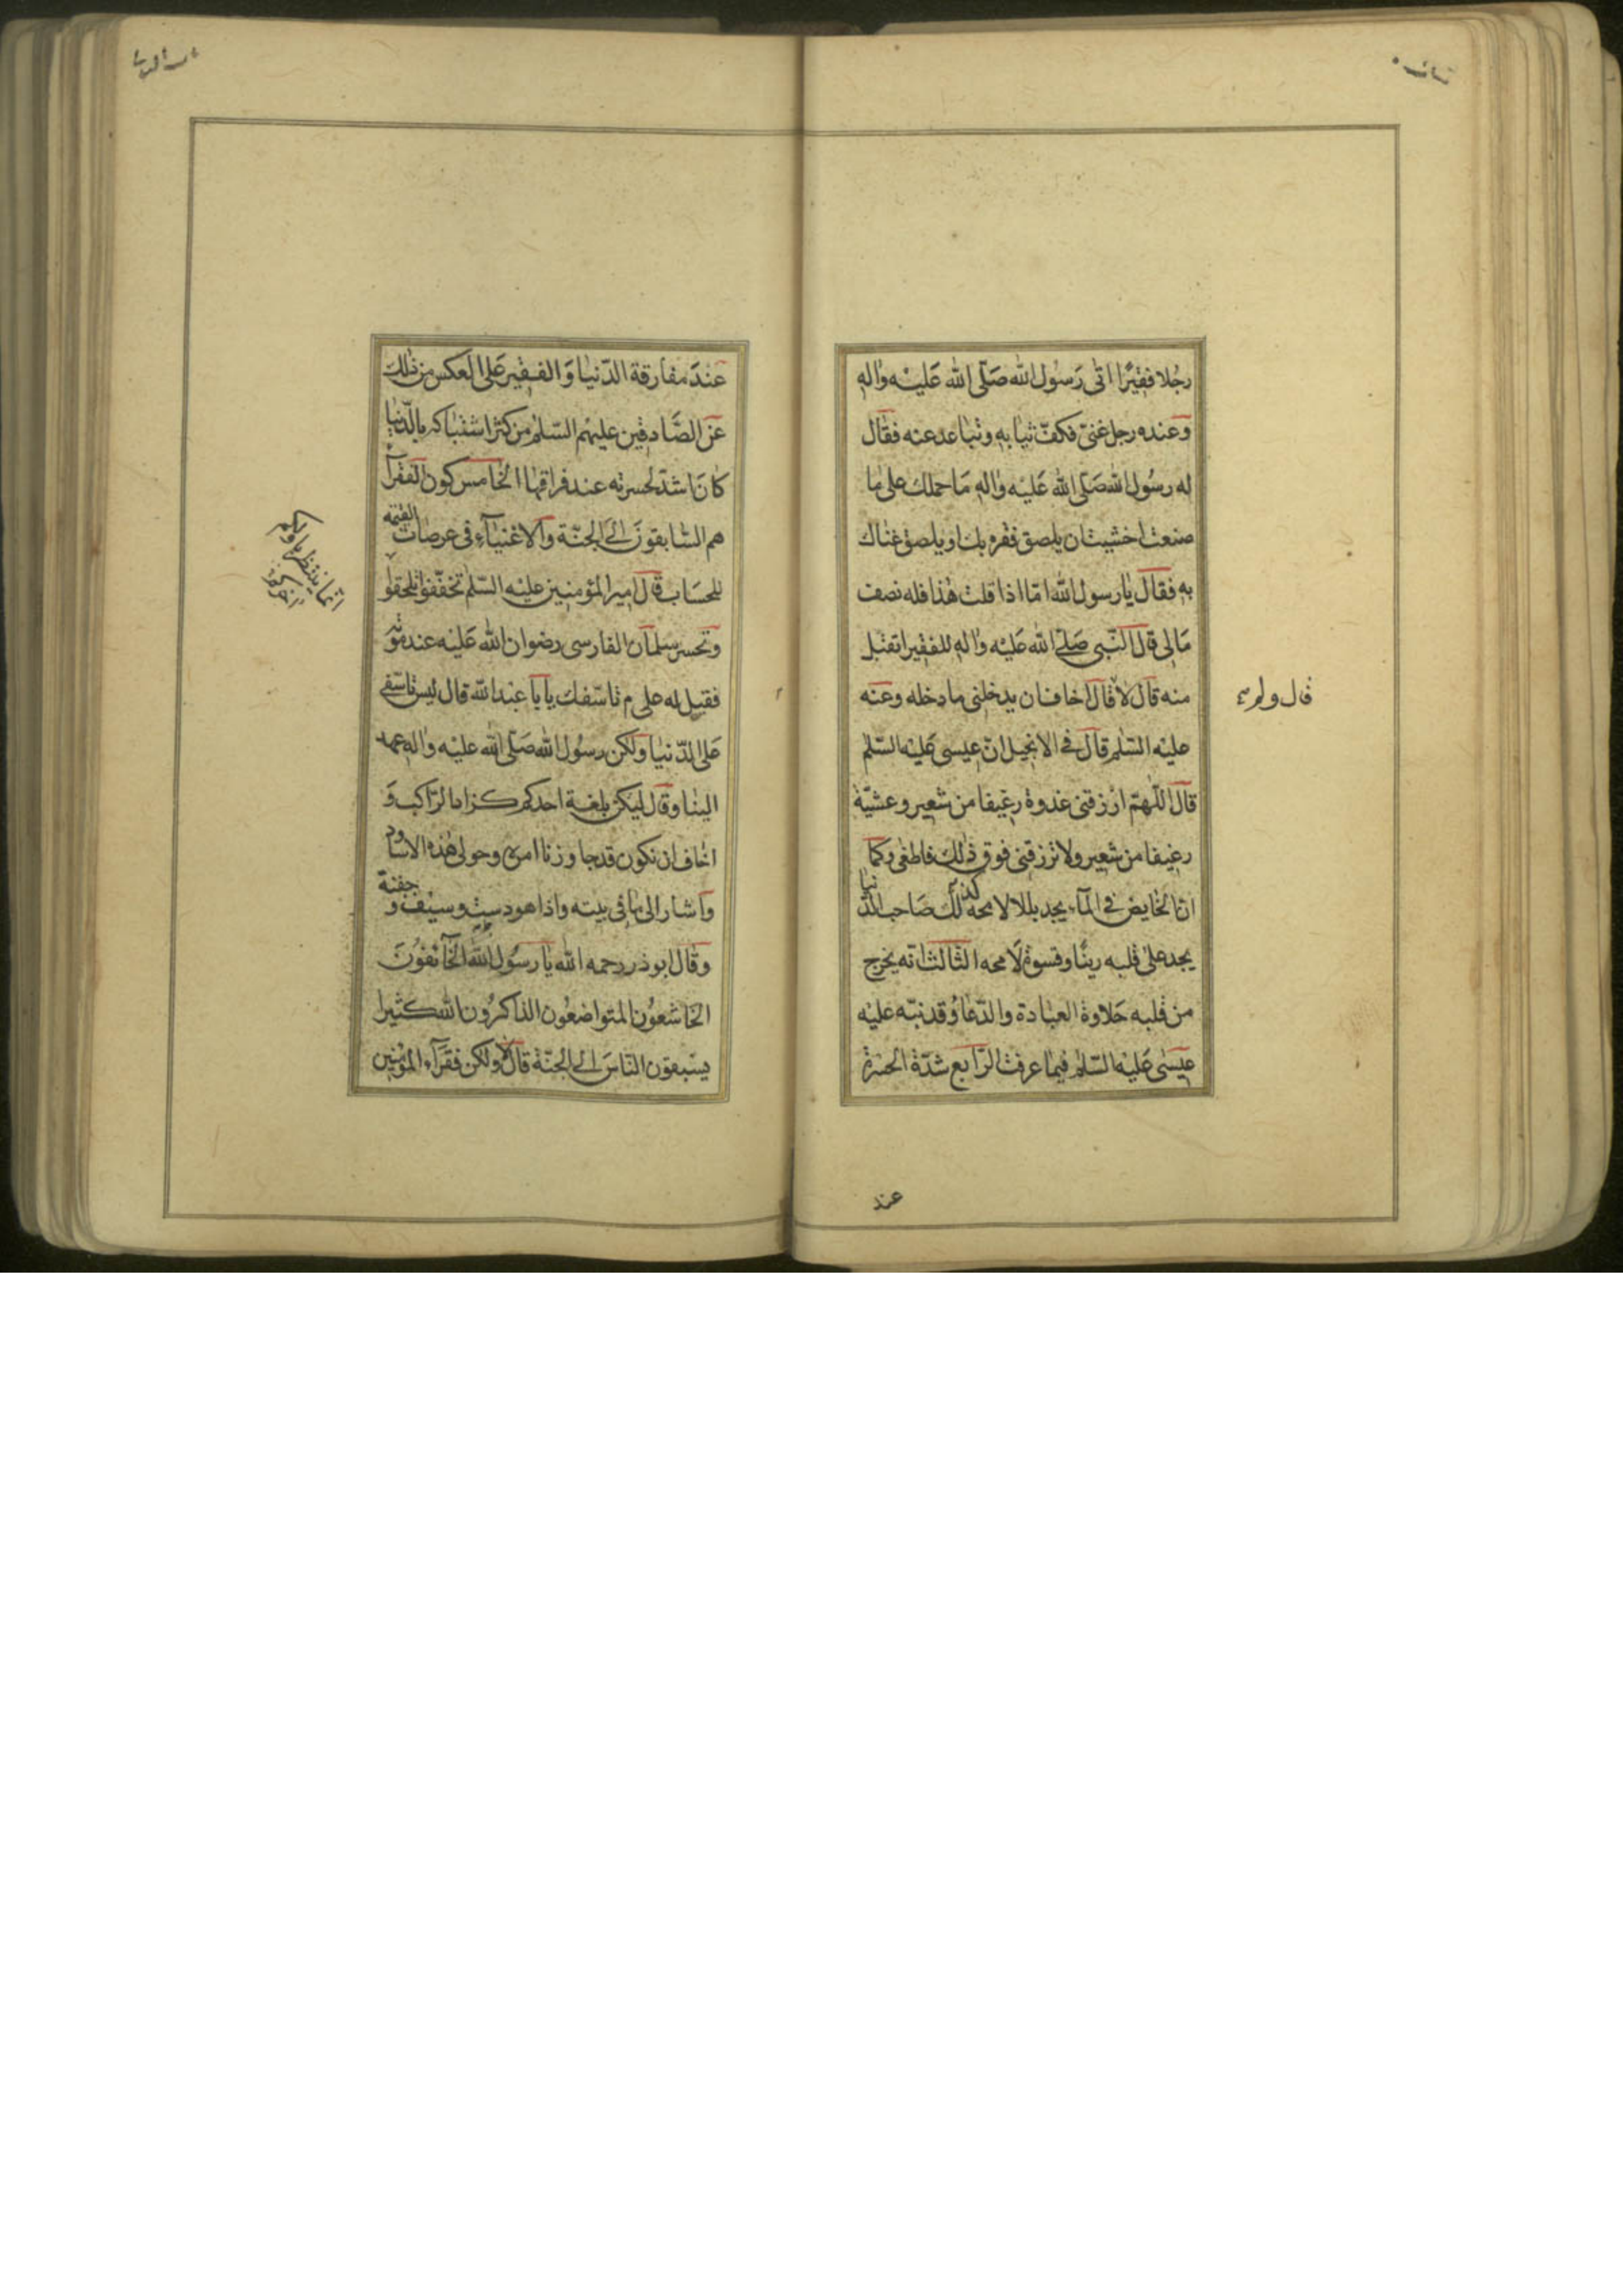 رجلا فقيرًا اتى رسول الله صلّى الله عليه واله
وعنده رجل غنىّ فكفّ ثيابه وتباعد عنه فقال
له رسول الله صلّى الله عليه واله ما حملك على ما
صنعت اخشيت ان يلصق فقره بك او يلصق غناك
به فقال يا رسول الله امّا اذا قلت هذا فله نصف
مالى قال النّبى صلّى الله عليه واله للفقير اتقبل
منه قال لا قال اخاف ان يدخلنى ما دخله وعنه
قال ولم
عليه السّلم قال فى الانجيل انّ عيسى عليه السّلم
قال اللّهمّ ارزقنى غدوة رغيفا من شعير وعشيّة
رغيفا من شعير ولا ترزقنى فوق ذلك فاطغى وكما
انّ الخايض فى المآء يجد بللا لا محه كذلك صاحب الدّنيا
يجد على قلبه رينًا وقسوة لا محه الثّالث انّه يخرج
من قلبه حلاوة العبادة والدّعا وقد نبّه عليه
عيسى عليه السّلم فيما عرفت الرّابع شدّة الحسرة
عند
عند مفارقة الدّنيا والفقير على العكس من ذلك
عن الصّادقين عليهم السّلم من كثر اشتباكه بالدّنيا
كان اشدّ لحسرته عند فراقها الخامس كون الفقرآء
هم السّابقون الى الجنّة والاغنيآء فى عرصات القيمه
للحساب قال امير المؤمنين عليه السّلم تخفّفوا تلحقوا
انّما ينتظر باولكم
اخركم
وتحسر سلمان الفارسى رضوان الله عليه عند موته
فقيل له على م تاسّفك يا با عبد الله قال ليس تاسّفى
على الدّنيا ولكن رسول الله صلّى الله عليه واله عهد
الينا وقال ليكن بلغة احدكم كزاد الرّاكب و
اخاف ان نكون قد جاوزنا امره وحولى هذه الاساود
واشار الى ما فى بيته واذا هو دست وسيف و جفنة
وقال ابو ذر رحمه الله يا رسول الله الخآئفون
الخاشعون المتواضعون الذاكرون الله كثيرا
يسبقون النّاس الى الجنّة قال لا ولكن فقرآء المؤمنين